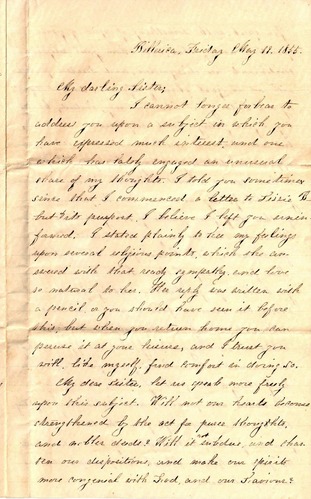 Billerica, Friday May 11. 1855.
My darling Sister;
I cannot longer forbear to
address you upon a subject in which you
have expressed much interest, and one
which has lately engaged an unusual
share of my thoughts. I told you sometime
since that I commenced a letter to Lizzie B—
but its purport, I believe I left you unin
formed. I stated plainly to her my feelings
upon several religious points, which she an
swered with that ready sympathy, and love
so natural to her. Her reply was written with
a pencil, or you should have seen it before
this, but when you return home you can
peruse it at your leisure, and I trust you
will, like myself, find comfort in doing so.
My dear Sister, let us speak more freely
upon this subject. Will not our hearts become
strengthened by the act for purer thoughts,
and nobler deeds? Will it not subdue, and chas
ten our dispositions, and make our spirits
more congenial with God, and our Saviour?